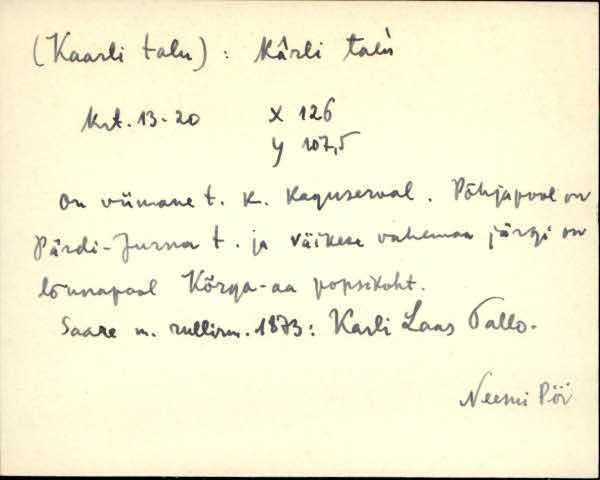 (Kaarli talu) : kàrli talù
krt. 13-20 X 126
y 107,5
on viimane t. k. kaguserval. Põhjapool on
Pärdi-Jurna t. ja väikese vahemaa järgi on
lõunapool Kõrga-aa popsikoht.
Saare m. rullirm. 1873: Karli Laas Tallo.
Neemi Pöi